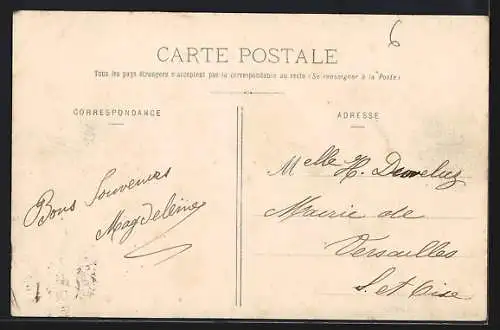 6
CARTE POSTALE
Tous les pays étrangers n'acceptent pas la correspondance au recto (Se renseigner à la Poste)
CORRESPONDANCE
Bons Souvenirs
Magdeleine
ADRESSE
Melle H.
Mairie de
Versailles
S. et Oise